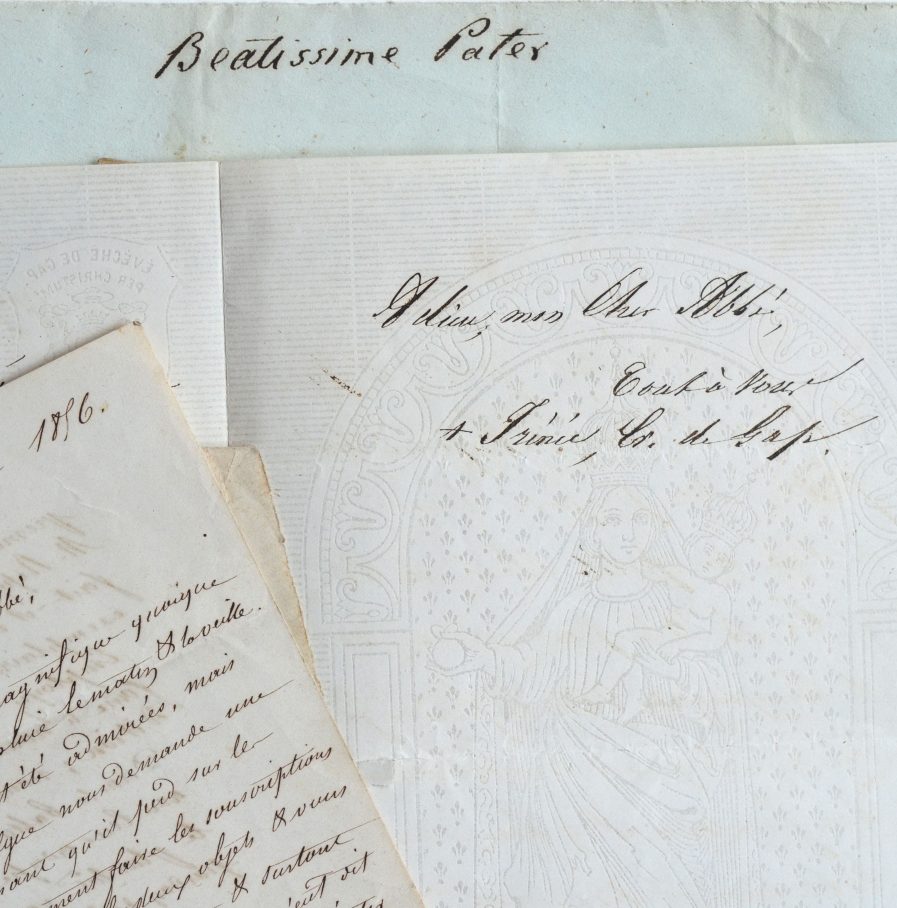 Beatissime Pater
EVÊCHÉ DE GAP
PER CHRISTUM
Adieu, mon Cher Abbé,
Tout à Vous
+ Irénée, Ev. de Gap.
1856.
bbé,
agnifique quoique
pluie le matin & la veille.
t été admirées, mais
lque nous demande une
qu'il perd sur les
ment faire les souscriptions
deux objets & vous
& surtout
dit